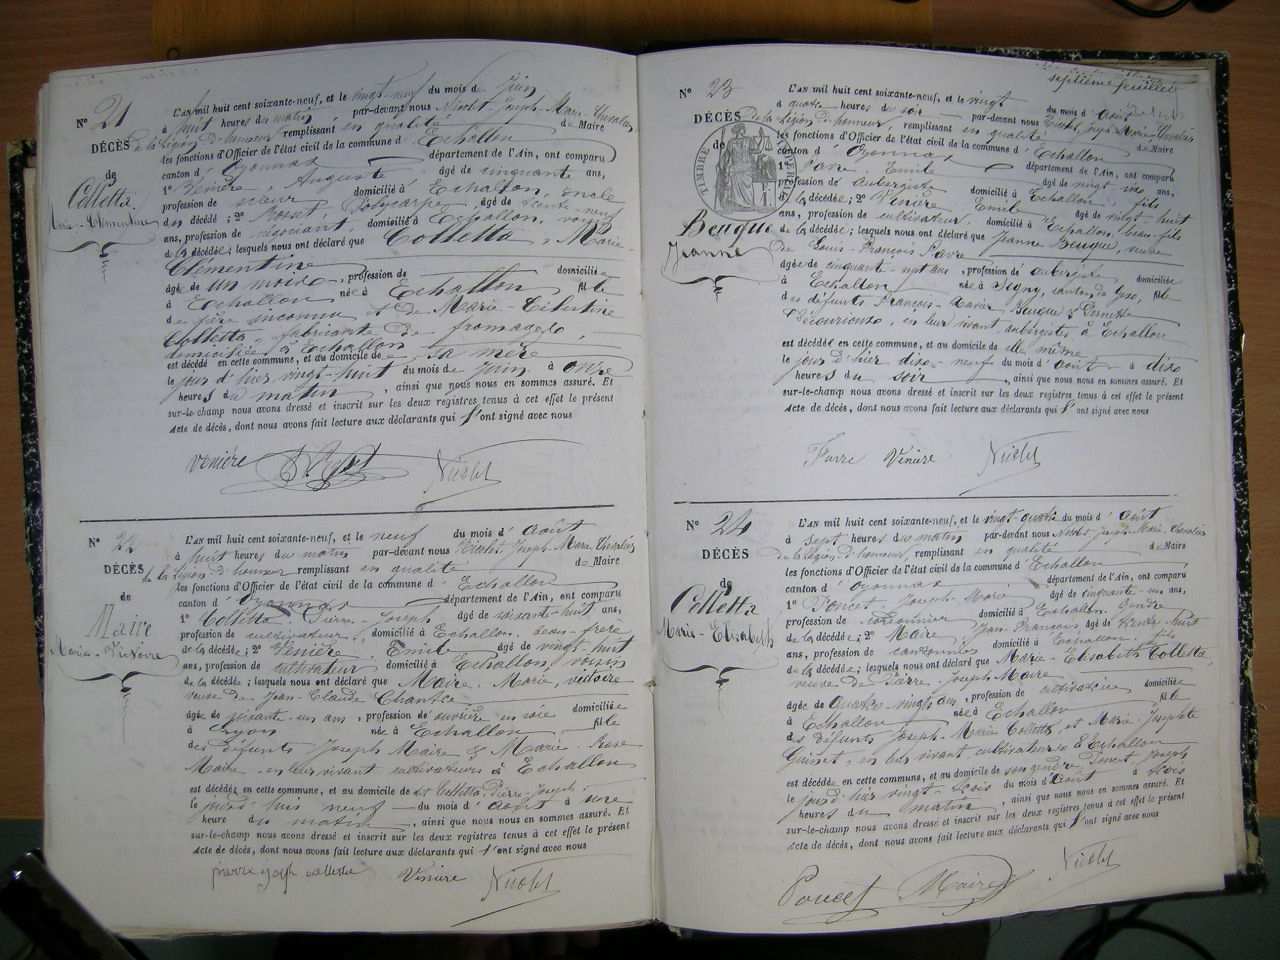 Nº 21
DÉCÈS
de
Colletta
Marie-Clémentine
L'AN mil huit cent soixante-neuf, et le vingt-neuf du mois de Juin
à huit heures du matin par-devant nous Nicolet Joseph-Marie Chevalier
de la Légion d'honneur remplissant en qualité de Maire
les fonctions d'Officier de l'état civil de la commune d'Echallon
canton d'Oyonnax département de l'Ain, ont comparu
1º Venière, Auguste âgé de cinquante ans,
profession de scieur domicilié à Echallon, oncle
du décédé; 2º Rosset, Polycarpe, âgé de
ans, profession de négociant, domicilié à Echallon, voisin
de la décédée; lesquels nous ont déclaré que Colletta, Marie-
Clémentine
âgée de un mois, profession de domiciliée
à Echallon née à Echallon fille
de père inconnu et de Marie-Célestine
Colletta, fabricante de fromages,
domiciliée à Echallon
est décédée en cette commune, et au domicile de sa mère
le jour d'hier vingt-huit du mois de Juin à onze
heures du matin, ainsi que nous nous en sommes assuré. Et
sur-le-champ nous avons dressé et inscrit sur les deux registres tenus à cet effet le présent
Acte de décès, dont nous avons fait lecture aux déclarants qui l'ont signé avec nous
Venière Nicolet
Nº 22
DÉCÈS
de
Maire
Marie-Victoire
L'AN mil huit cent soixante-neuf, et le neuf du mois d'août
à huit heures du matin par-devant nous Nicolet Joseph-Marie Chevalier
de la Légion d'honneur remplissant en qualité de Maire
les fonctions d'Officier de l'état civil de la commune d'Echallon
canton d'Oyonnax département de l'Ain, ont comparu
1º Colletta Pierre-Joseph âgé de soixante-huit ans,
profession de cultivateur, domicilié à Echallon, beau-frère
de la décédée; 2º Venière Emile âgé de vingt-huit
ans, profession de cultivateur domicilié à Echallon, voisin
de la décédée; lesquels nous ont déclaré que Maire, Marie, victoire
veuve de Jean-Claude
âgée de soixante-un ans, profession de ouvrière en soie domiciliée
à Lyon née à Echallon, fille
des défunts Joseph Maire & Marie-Rose
Maire, en leur vivant cultivateurs à Echallon
est décédée en cette commune, et au domicile de Colletta Pierre-Joseph
le neuf du mois d'août à une
heure du matin, ainsi que nous nous en sommes assuré. Et
sur-le-champ nous avons dressé et inscrit sur les deux registres tenus à cet effet le présent
Acte de décès, dont nous avons fait lecture aux déclarants qui l'ont signé avec nous
pierre josph colletta Venière Nicolet
septième feuillet
Nº 23
DÉCÈS
de
TIMBRE IMPÉRIAL
Beuque
Jeanne
L'AN mil huit cent soixante-neuf, et le vingt du mois d'Août
à quatre heures du soir par-devant nous Nicolet Joseph Marie-Chevalier
de la Légion d'honneur, remplissant en qualité de Maire
les fonctions d'Officier de l'état civil de la commune d'Echallon
canton d'Oyonnax département de l'Ain, ont comparu
1º Favre, Emile âgé de vingt-six ans,
profession de aubergiste domicilié à Echallon, fils
de la décédée; 2º Venière Emile âgé de vingt-huit
ans, profession de cultivateur, domicilié à Echallon, beau-fils
de la décédée; lesquels nous ont déclaré que Jeanne Beuque, veuve
de Louis-François Favre
âgée de cinquante-sept ans, profession de aubergiste domiciliée
à Echallon née à Ségny, canton de Gex, fille
des défunts François-Xavier Beuque & Pernette
en leur vivant aubergistes à Echallon
est décédée en cette commune, et au domicile de elle même
le jour d'hier dix-neuf du mois d'août à dix
heures du soir, ainsi que nous nous en sommes assuré. Et
sur-le-champ nous avons dressé et inscrit sur les deux registres tenus à cet effet le présent
Acte de décès, dont nous avons fait lecture aux déclarants qui l'ont signé avec nous
Favre Venière Nicolet
Nº 24
DÉCÈS
de
Colletta
Marie-Elisabeth
L'AN mil huit cent soixante-neuf, et le vingt-quatre du mois d'août
à sept heures du matin par-devant nous Nicolet Joseph-Marie-Chevalier
de la Légion d'honneur, remplissant en qualité de Maire
les fonctions d'Officier de l'état civil de la commune d'Echallon
canton d'Oyonnax département de l'Ain, ont comparu
1º Poncet Joseph-Marie âgé de cinquante-un ans,
profession de cantonnier domicilié à Echallon, gendre
de la décédée; 2º Maire Jean-François, âgé de trente-huit
ans, profession de cantonnier domicilié à Echallon, fils
de la décédée; lesquels nous ont déclaré que Marie-Elisabeth Colletta,
veuve de Pierre-Joseph Maire
âgée de quatre-vingts ans, profession de cultivatrice domiciliée
à Echallon née à Echallon fille
des défunts Joseph-Marie Colletta, et Marie-Josephte
en leur vivant cultivateurs à Echallon
est décédée en cette commune, et au domicile de son gendre Poncet Joseph
le jour d'hier vingt-trois du mois d'Août à trois
heures du matin, ainsi que nous nous en sommes assuré. Et
sur-le-champ nous avons dressé et inscrit sur les deux registres tenus à cet effet le présent
Acte de décès, dont nous avons fait lecture aux déclarants qui l'ont signé avec nous
Poncet Maire Nicolet